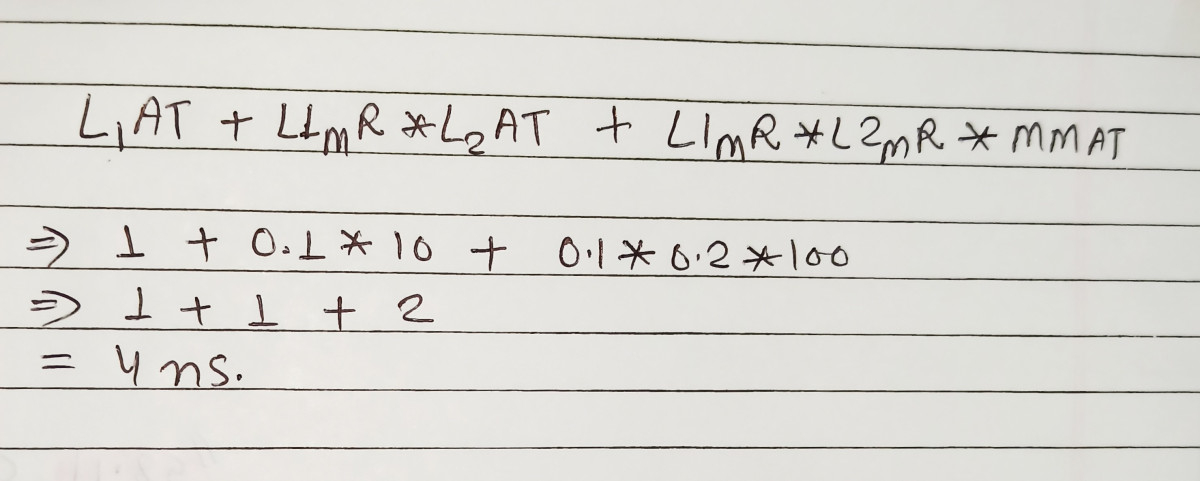 L₁AT + L1ₘR *L₂AT + L1ₘR *L2ₘR * MMAT
⇒ 1 + 0.1 * 10 + 0.1 * 0.2 * 100
⇒ 1 + 1 + 2
= 4 ns.